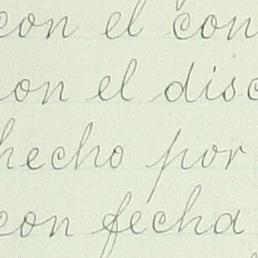 con el con
con el disc
hecho por
con fecha